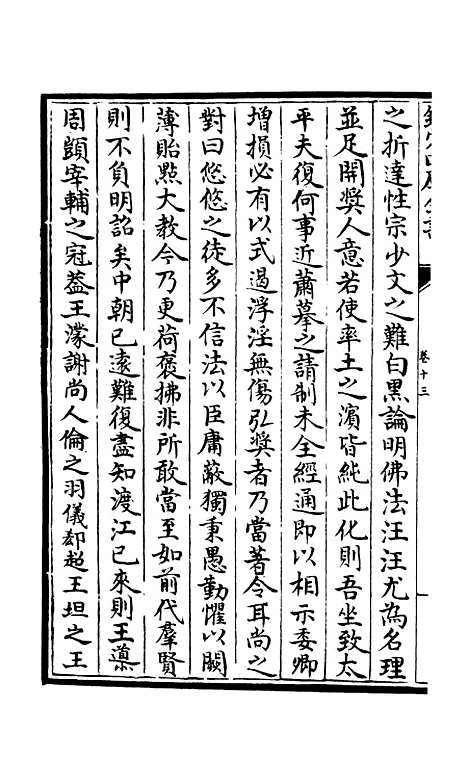 欽定四庫全書
卷十三
之折達性宗少文之難白黑論明佛法汪汪尤為名理
並足開獎人意若使率土之濵皆純此化則吾坐致太
平夫復何事近蕭摹之請制未全經通即以相示委卿
增損必有以式遏浮淫無傷弘獎者乃當著令耳尚之
對曰悠悠之徒多不信法以臣庸蔽獨秉愚勤懼以闕
薄貽㸃大教今乃更荷褒拂非所敢當至如前代羣賢
則不負明詔矣中朝已逺難復盡知渡江已來則王導
周顗宰輔之冠葢王濛謝尚人倫之羽儀郄超王坦之王